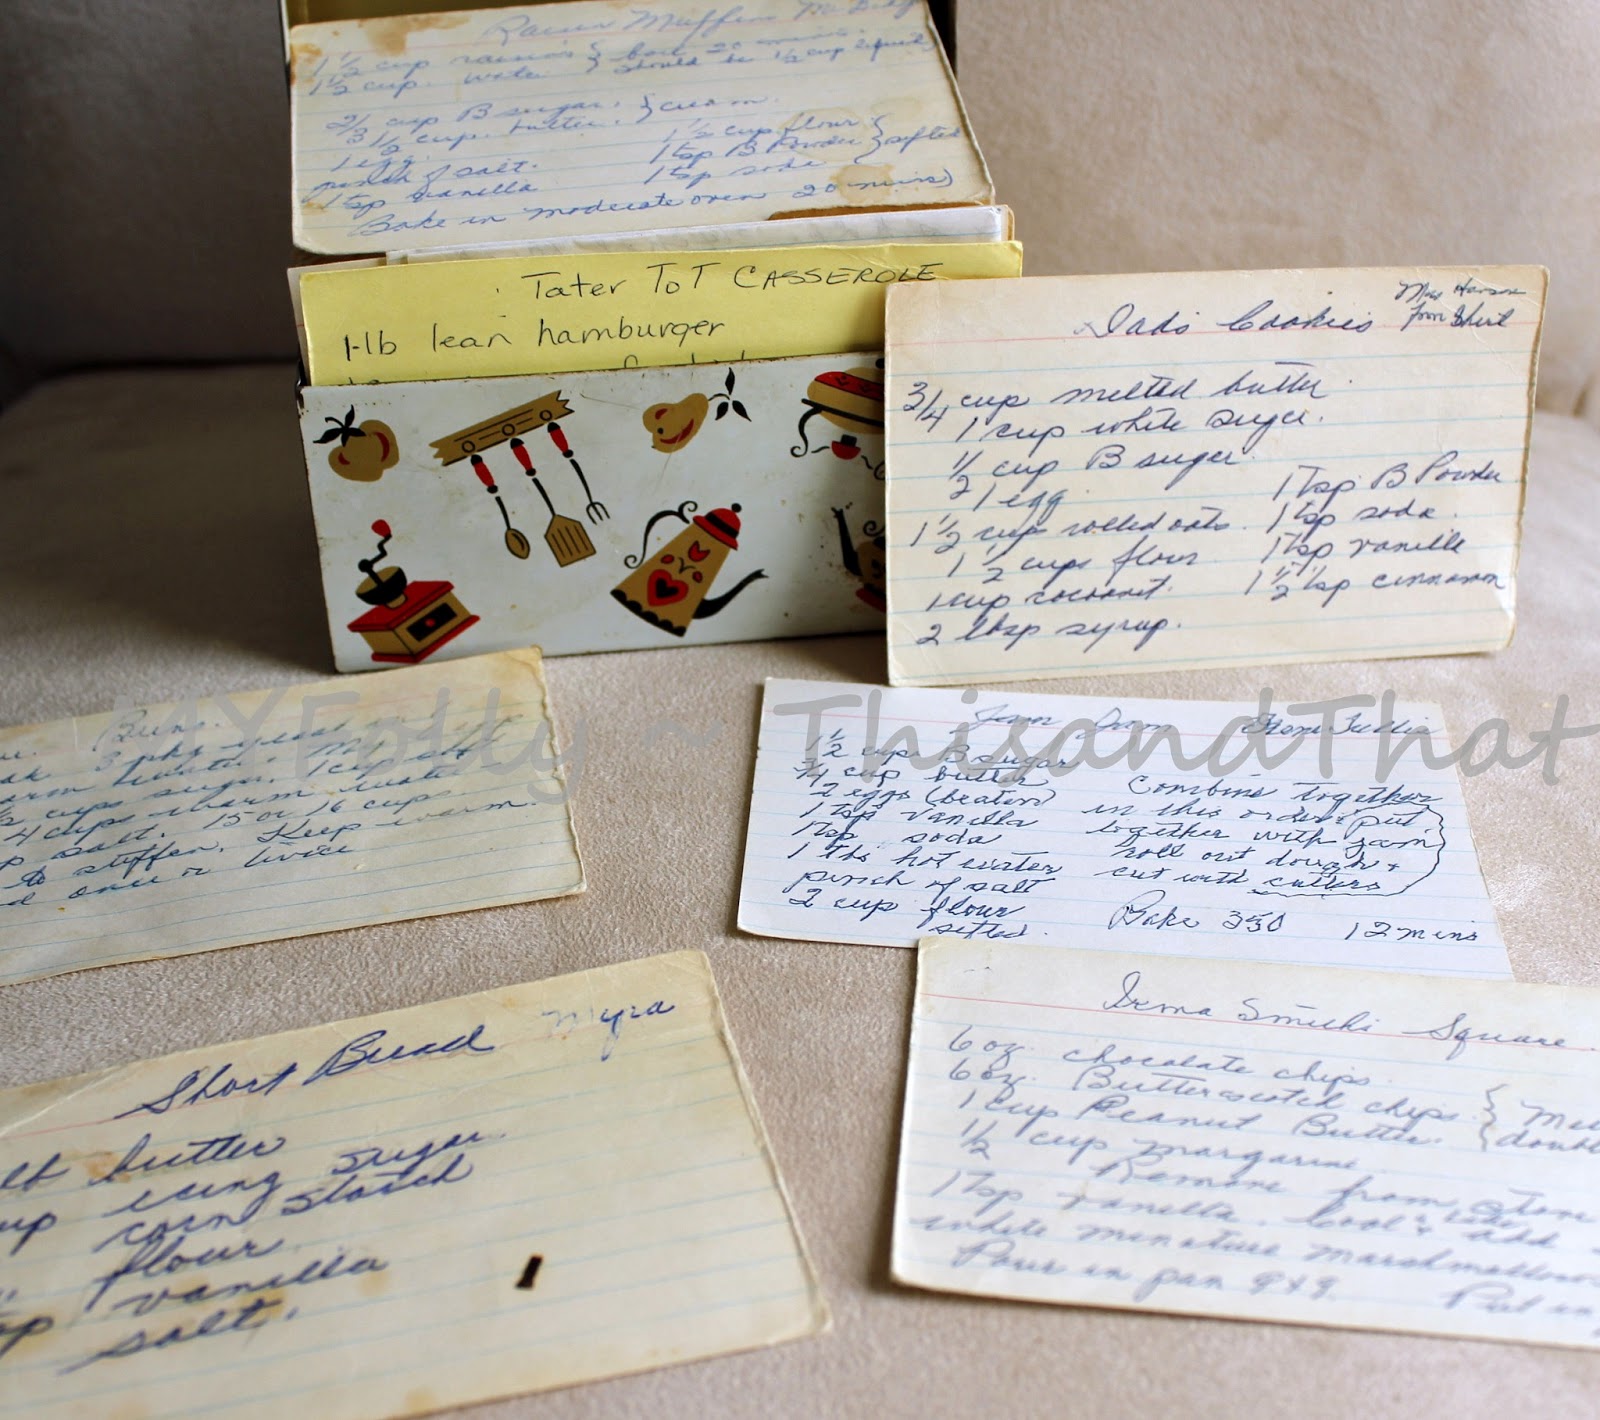 Raisin Muffins
1 1/2 cup raisins } boil 20 mins.
1 1/2 cup water } should be 1/2 cup liquid
2/3 cup B sugar. } cream.
1/2 cup butter.
1 egg. 1 1/2 cup flour
pinch of salt. 1 tsp B Powder } sifted
1 tsp vanilla 1 tsp soda
Bake in moderate oven 20 mins)
Tater ToT CASSEROLE
1-lb lean hamburger
Dads Cookies
from Shirl
3/4 cup melted butter.
1 cup white sugar.
1/2 cup B sugar.
1 egg 1 Tsp B Powder
1 1/2 cup rolled oats. 1 tsp soda.
1 1/2 cups flour 1 Tsp vanilla
1 cup cocoanut. 1 1/2 tsp cinnamon
2 tbsp syrup.
MYFolly ~ ThisandThat
Buns.
3 pkg yeast
warm water.
cups sugar. 1 cup
4 cups warm water
salt. 15 or 16 cups
to stiffen. Keep warm.
once or twice
Jam Jam
1 1/2 cup B sugar
3/4 cup butter
2 eggs (beaten)
1 tsp vanilla
1 tsp soda
1 tbs hot water
pinch of salt
2 cup flour
sifted.
Combine together
in this order. put
together with jam
roll out dough +
cut with cutters
Bake 350 12 mins
Short Bread Myra
lb butter
icing sugar.
corn starch
flour
vanilla
salt.
Irma Smiths Square.
6 oz. chocolate chips.
6 oz. Butterscotch chips
1 cup Peanut Butter.
1/2 cup margarine.
Remove from stove
1 tsp vanilla. Cool + add
white minature marshmallows
Pour in pan 9x9. Put in